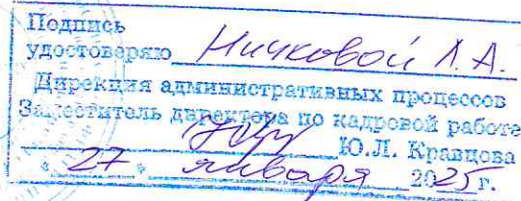 Подпись
удостоверяю Ничковой Л.А.
Дирекция административных процессов
Заместитель директора по кадровой работе
Ю.Л. Кравцова
« 27 » января 2025 г.